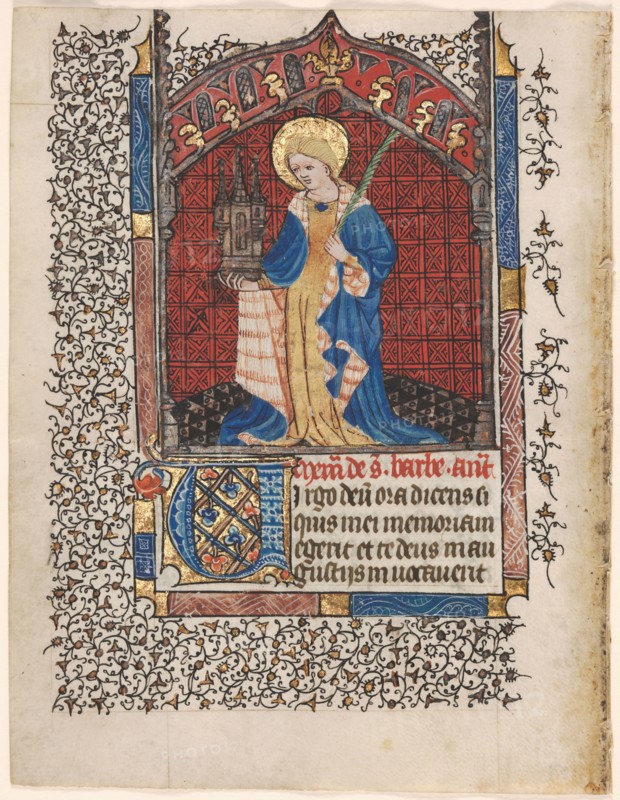 Memoire de s. barbe. ant.
Virgo deū ora dicens si
quis mei memoriam
egerit et te deus in an
gustijs invocaverit